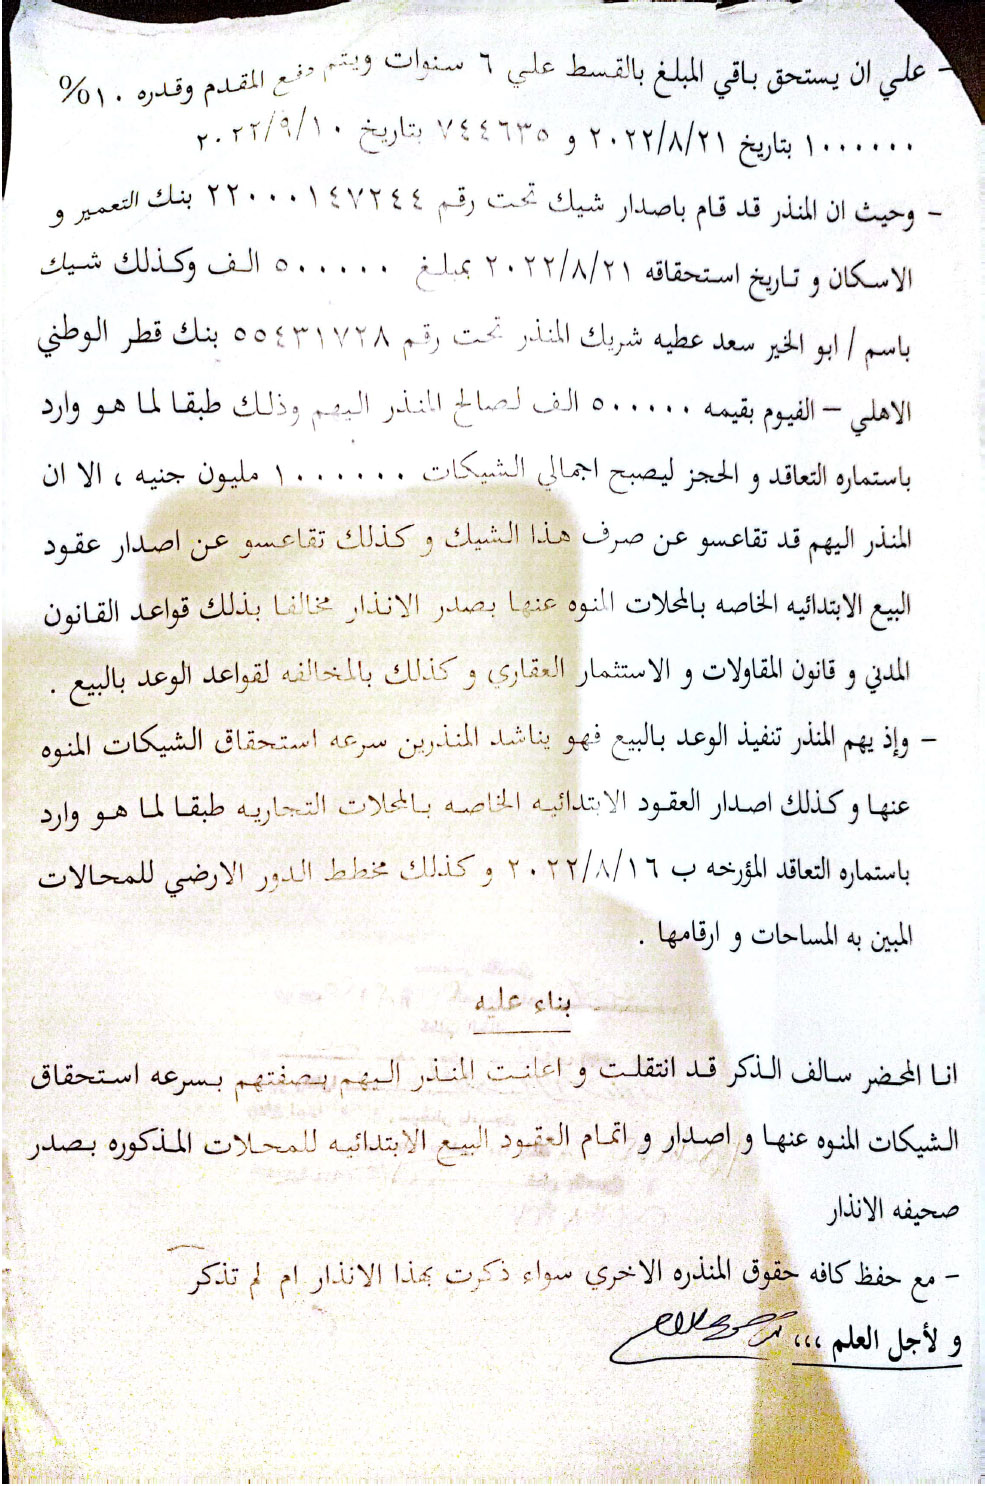 - علي ان يستحق باقي المبلغ بالقسط علي ٦ سنوات ويتم دفع المقدم وقدره ١٠%
١٠٠٠٠٠٠ بتاريخ ٢٠٢٢/٨/٢١ و ٧٤٤٦٣٥ بتاريخ ٢٠٢٢/٩/١٠
- وحيث ان المنذر قد قام باصدار شيك تحت رقم ٢٢٠٠٠١٤٧٢٤٤ بنك التعمير و
الاسكان و تاريخ استحقاقه ٢٠٢٢/٨/٢١ بمبلغ ٥٠٠٠٠٠ الف وكذلك شيك
باسم / ابو الخير سعد عطيه شريك المنذر تحت رقم ٥٥٤٣١٧٢٨ بنك قطر الوطني
الاهلي – الفيوم بقيمه ٥٠٠٠٠٠ الف لصالح المنذر اليهم وذلك طبقا لما هو وارد
باستماره التعاقد و الحجز ليصبح اجمالي الشيكات ١٠٠٠٠٠٠ مليون جنيه ، الا ان
المنذر اليهم قد تقاعسو عن صرف هذا الشيك و كذلك تقاعسو عن اصدار عقود
البيع الابتدائيه الخاصه بالمحلات المنوه عنها بصدر الانذار مخالفا بذلك قواعد القانون
المدني و قانون المقاولات و الاستثمار العقاري و كذلك بالمخالفه لقواعد الوعد بالبيع .
- وإذ يهم المنذر تنفيذ الوعد بالبيع فهو يناشد المنذرين سرعه استحقاق الشيكات المنوه
عنها و كذلك اصدار العقود الابتدائيه الخاصه بالمحلات التجاريه طبقا لما هو وارد
باستماره التعاقد المؤرخه ب ٢٠٢٢/٨/١٦ و كذلك مخطط الدور الارضي للمحالات
المبين به المساحات و ارقامها .
بناء عليه
انا المحضر سالف الذكر قد انتقلت و اعلنت المنذر اليهم بصفتهم بسرعه استحقاق
الشيكات المنوه عنها و اصدار و اتمام العقود البيع الابتدائيه للمحلات المذكوره بصدر
صحيفه الانذار
- مع حفظ كافه حقوق المنذره الاخري سواء ذكرت بهذا الانذار ام لم تذكر
و لأجل العلم ،،،